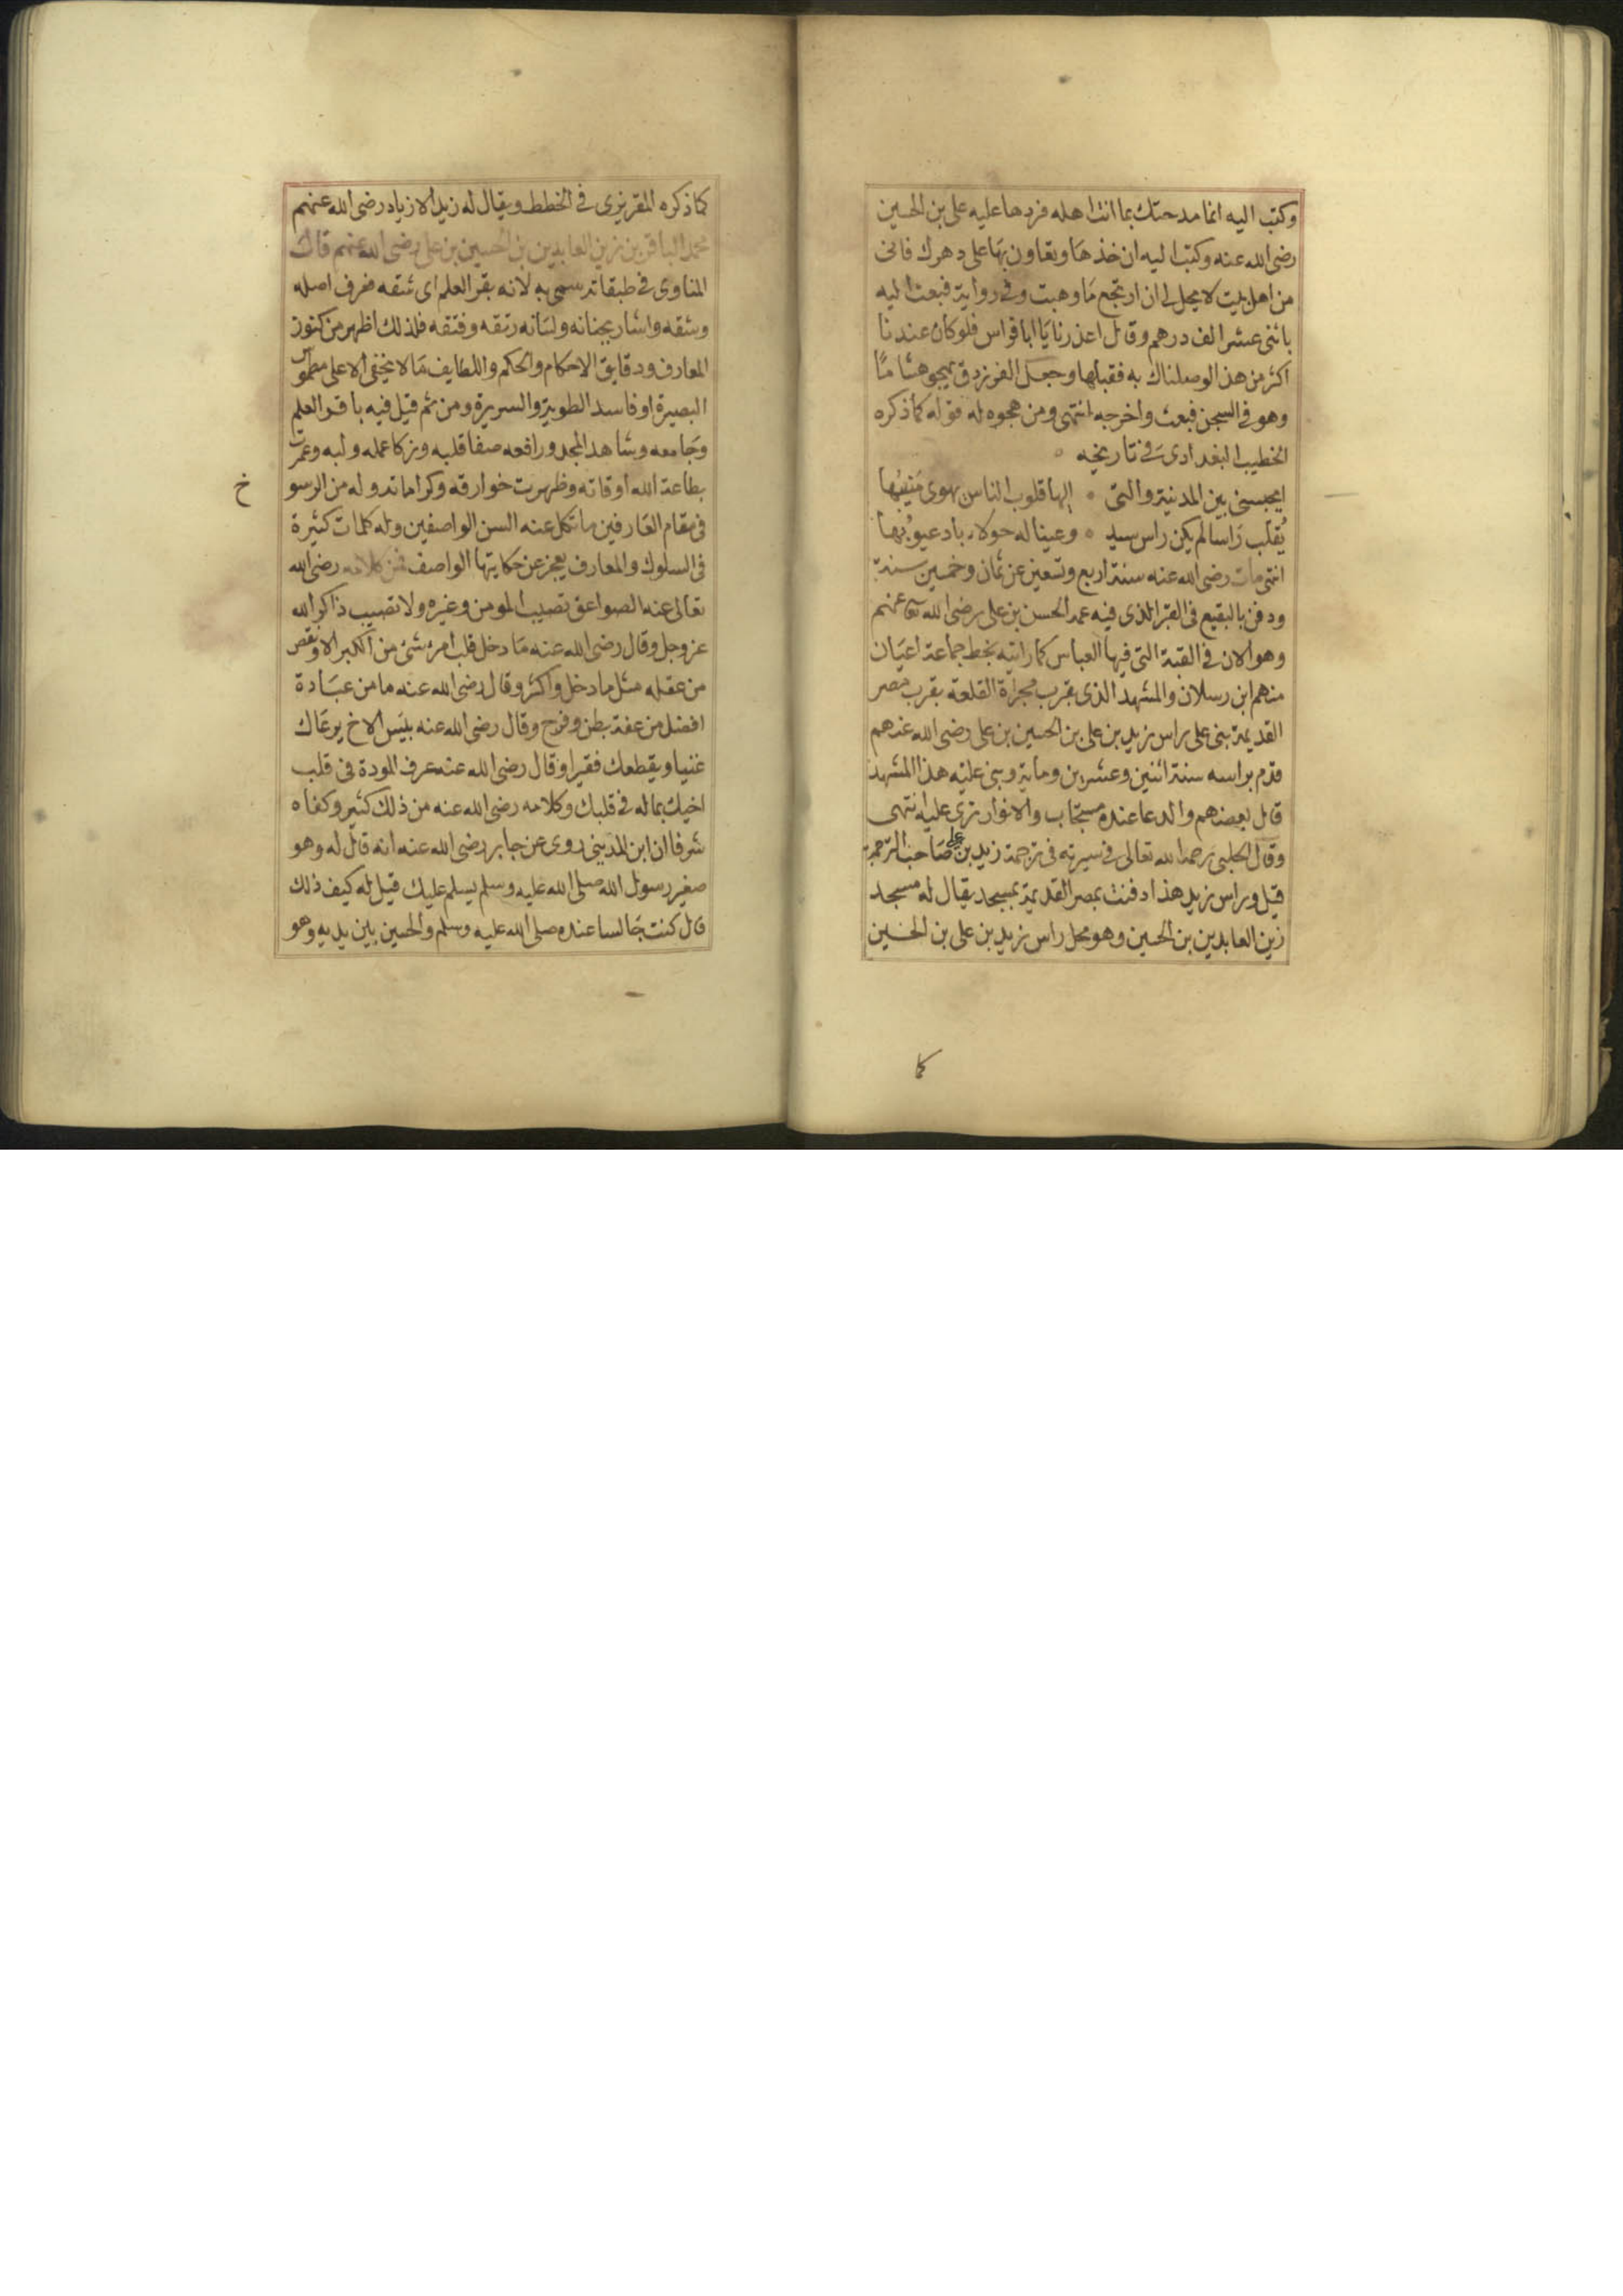 وكتب اليه انما مدحتك بما انت اهله فردها عليه على بن الحسين
رضى الله عنه وكتب اليه ان خذها وتعاون بها على دهرك فانى
من اهل بيت لا يحل لى ان ارتجع ما وهبت وفى رواية فبعث اليه
باثنى عشر الف درهم وقال اعذرنا يا ابا فراس فلو كان عندنا
اكثر من هذا لوصلناك به فقبلها وجعل الفرزدق يهجو هشاما
وهو فى السجن فبعث واخرجه انتهى ومن هجوه له قوله كما ذكره
الخطيب البغدادى فى تاريخه
ايحبسنى بين المدينة والتى ۰ اليها قلوب الناس يهوى منيبها
يقلب راسا لم يكن راس سيد ۰ وعينا له حولاء باد عيوبها
انتهى مات رضى الله عنه سنة اربع وتسعين عن ثمان وخمسين سنة
ودفن بالبقيع فى القبر الذى فيه عمه الحسن بن على رضى الله تعا عنهم
وهو الان فى القبة التى فيها العباس كما رايته بخط جماعة اعيان
منهم ابن رسلان والمشهد الذى بقرب مجراة القلعة بقرب مصر
القديمة بنى على راس زيد بن على بن الحسين بن على رضى الله عنهم
قدم براسه سنة اثنين وعشرين وماية وبنى عليه هذا المشهد
قال بعضهم والدعا عنده مستجاب والانوار ترى عليه انتهى
وقال الحلبى رحمه الله تعالى فى سيرته فى ترجمة زيد بن على صاحب الترجمة
قيل وراس زيد هذا دفنت بمصر القديمة بمسجد يقال له مسجد
زين العابدين بن الحسين وهو محل راس زيد بن على بن الحسين
كما
كما ذكره المقريزى فى الخطط ويقال له زيد الازياد رضى الله عنهم
محمد الباقر بن زين العابدين بن الحسين بن على رضى الله عنهم قال
المناوى فى طبقاته سمى به لانه بقر العلم اى شقه فعرف اصله
وشقه واشار بجنانه ولسانه رتقه وفتقه فلذلك اظهر من كنوز
المعارف ودقايق الاحكام والحكم واللطايف ما لا يخفى الا على مطموس
البصيرة او فاسد الطوية والسريرة ومن ثم قيل فيه باقر العلم
وجامعه وشاهد المجد ورافعه صفا قلبه وزكا عمله ولبه وعمرت
بطاعة الله اوقاته وظهرت خوارقه وكراماته وله من الرسو
خ
فى مقام العارفين ما تكل عنه السن الواصفين وله كلمات كثيرة
فى السلوك والمعارف يعجز عن حكايتها الواصف فمن كلامه رضى الله
تعالى عنه الصواعق تصيب المومن وغيره ولا تصيب ذاكر الله
عز وجل وقال رضى الله عنه ما دخل قلب امرء شئ من الكبر الا ونقص
من عقله مثل ما دخل واكثر وقال رضى الله عنه ما من عبادة
افضل من عفة بطن وفرج وقال رضى الله عنه بيس الاخ يرعاك
غنيا ويقطعك فقيرا وقال رضى الله عنه عرف المودة فى قلب
اخيك بما له فى قلبك وكلامه رضى الله عنه من ذلك كثير وكفاه
شرفا ان ابن المدينى روى عن جابر رضى الله عنه انه قال له وهو
صغير رسول الله صلى الله عليه وسلم يسلم عليك قيل له كيف ذلك
قال كنت جالسا عنده صلى الله عليه وسلم والحسين بين يديه وهو